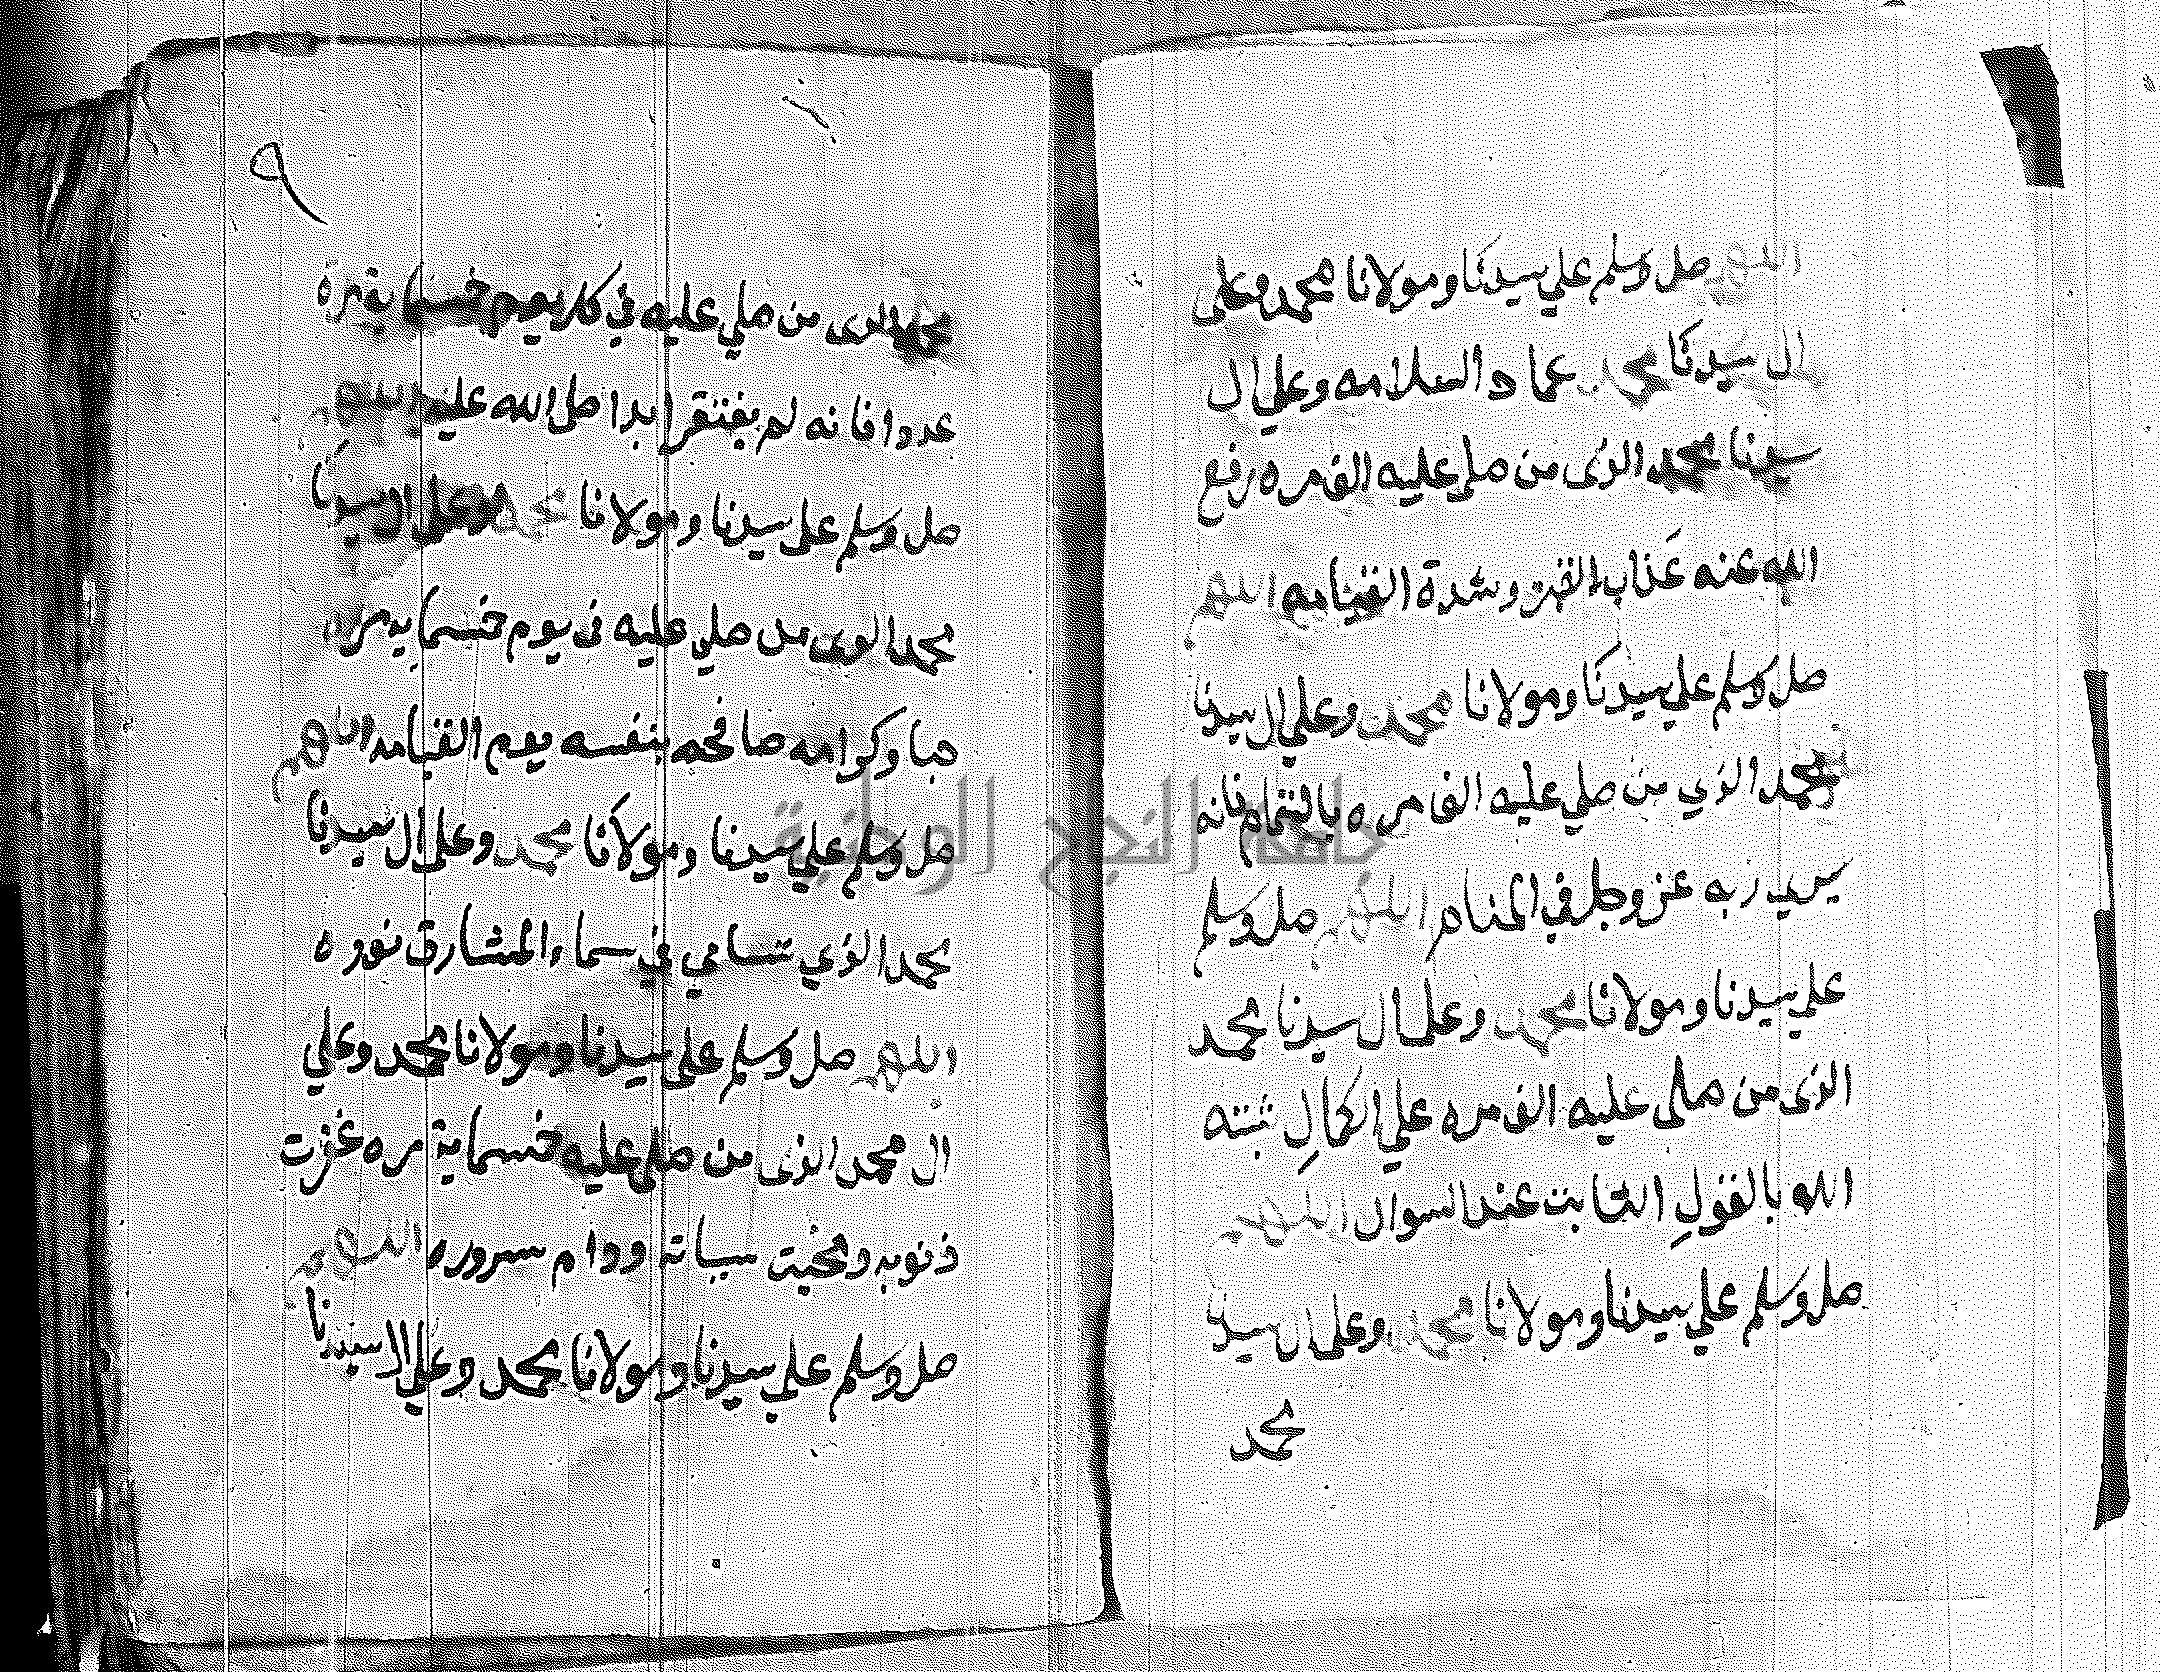 اللهم صل وسلم علي سيدنا ومولانا محمد وعلى
ال سيدنا محمد عماد السلامه وعلي ال
سيدنا محمد الذى من صلى عليه الف مره رفع
الله عنه عذاب القبر وشدة القيامه اللهم
صل وسلم علي سيدنا ومولانا محمد وعلي ال سيدنا
محمد الذي من صلي عليه الف مره بالتمام فانه
يريد ربه عز وجل في المنام اللهم صل وسلم
علي سيدنا ومولانا محمد وعلى ال سيدنا محمد
الذى من صلى عليه الف مره علي الكمالِ ثبته
الله بالقولِ الثابت عند السوال اللهم
صل وسلم علي سيدنا ومولانا محمد وعلى ال سيدنا
محمد
٩
محمد الذى من صلي عليه في كل يوم خمسماية مرة
عدوا فانه لم يفتقر ابدا صلى الله عليه اللهم
صل وسلم على سيدنا ومولانا محمد وعلى ال سيدنا
محمد الذى من صلي عليه فى يوم خمسمايه مره
حبا وكرامه صافحه بنفسه يوم القيامه اللهم
صل وسلم علي سيدنا ومولانا محمد وعلى ال سيدنا
محمد الذي تسامي في سماء المشارق نوره
اللهم صل وسلم على سيدنا ومولانا محمد وعلي
ال محمد الذى من صلى عليه خمسماية مره غفرت
ذنوبه ومحيت سياته ودام سروره اللهم
صل وسلم على سيدنا ومولانا محمد وعلي ال سيدنا
جامعة النجاح الوطنية